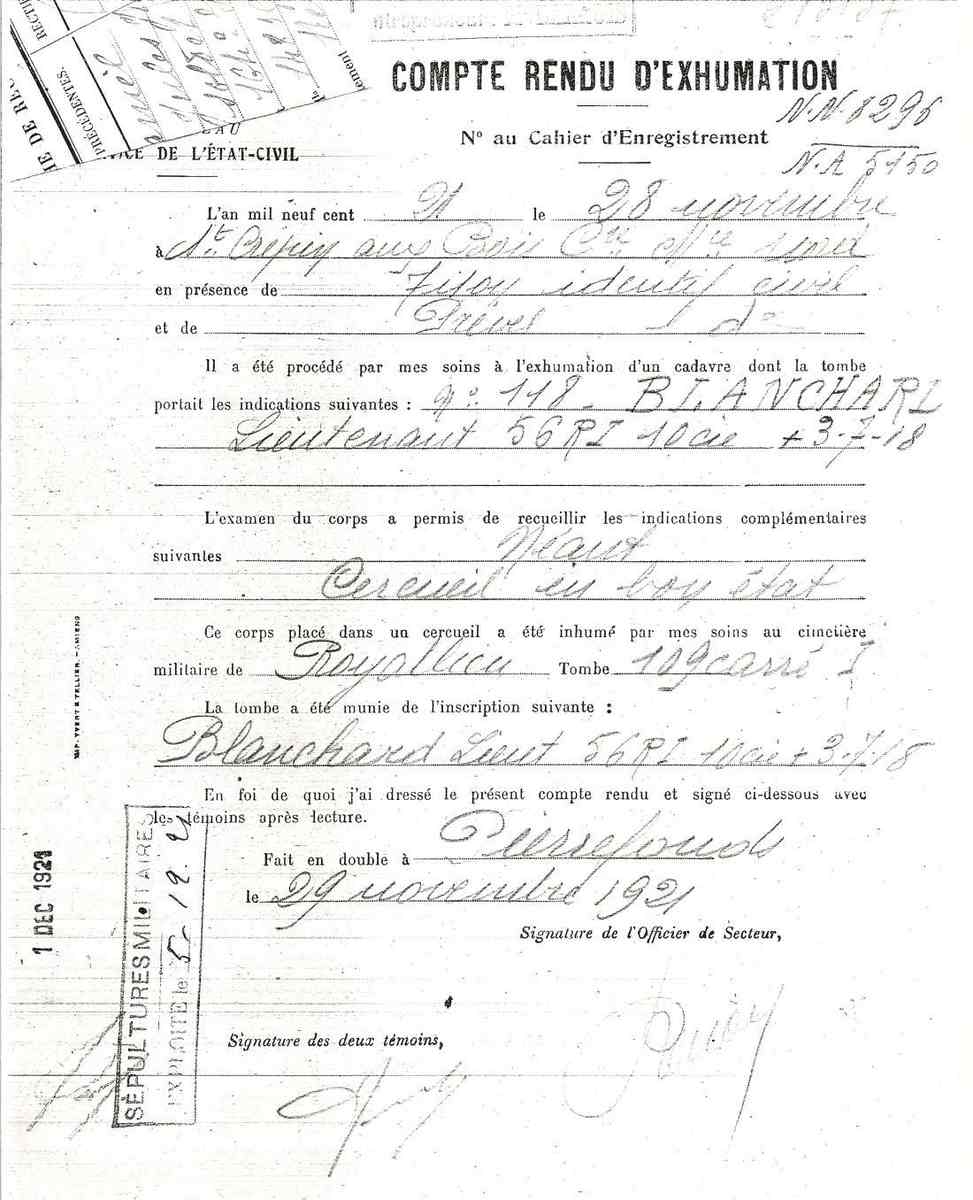 RECTI
PRÉCÉDENTES.
IE DE RE
COMPTE RENDU D'EXHUMATION
N.N. 8296
N° au Cahier d'Enregistrement
N.A 5150
DE L'ÉTAT-CIVIL
L'an mil neuf cent 21 le 28 novembre
à St Crépin aux Bois Cre Mre
en présence de identif civil
et de do
Il a été procédé par mes soins à l'exhumation d'un cadavre dont la tombe
portait les indications suivantes : No 118 - BLANCHARD
Lieutenant 56 RI 10 cie + 3-7-18
L'examen du corps a permis de recueillir les indications complémentaires
suivantes Néant
Cercueil en bon état
Ce corps placé dans un cercueil a été inhumé par mes soins au cimetière
militaire de Royallieu Tombe 109 carré I
La tombe a été munie de l'inscription suivante :
Blanchard Lieut 56 RI 10 cie + 3-7-18
En foi de quoi j'ai dressé le présent compte rendu et signé ci-dessous avec
les témoins après lecture.
Fait en double à Pierrefonds
le 29 novembre 1921
Signature de l'Officier de Secteur,
Signature des deux témoins,
IMP. YVERT & TELLIER. - AMIENS
1 DEC 1921
SÉPULTURES MILITAIRES
EXPLOITÉ le 5-12. 21